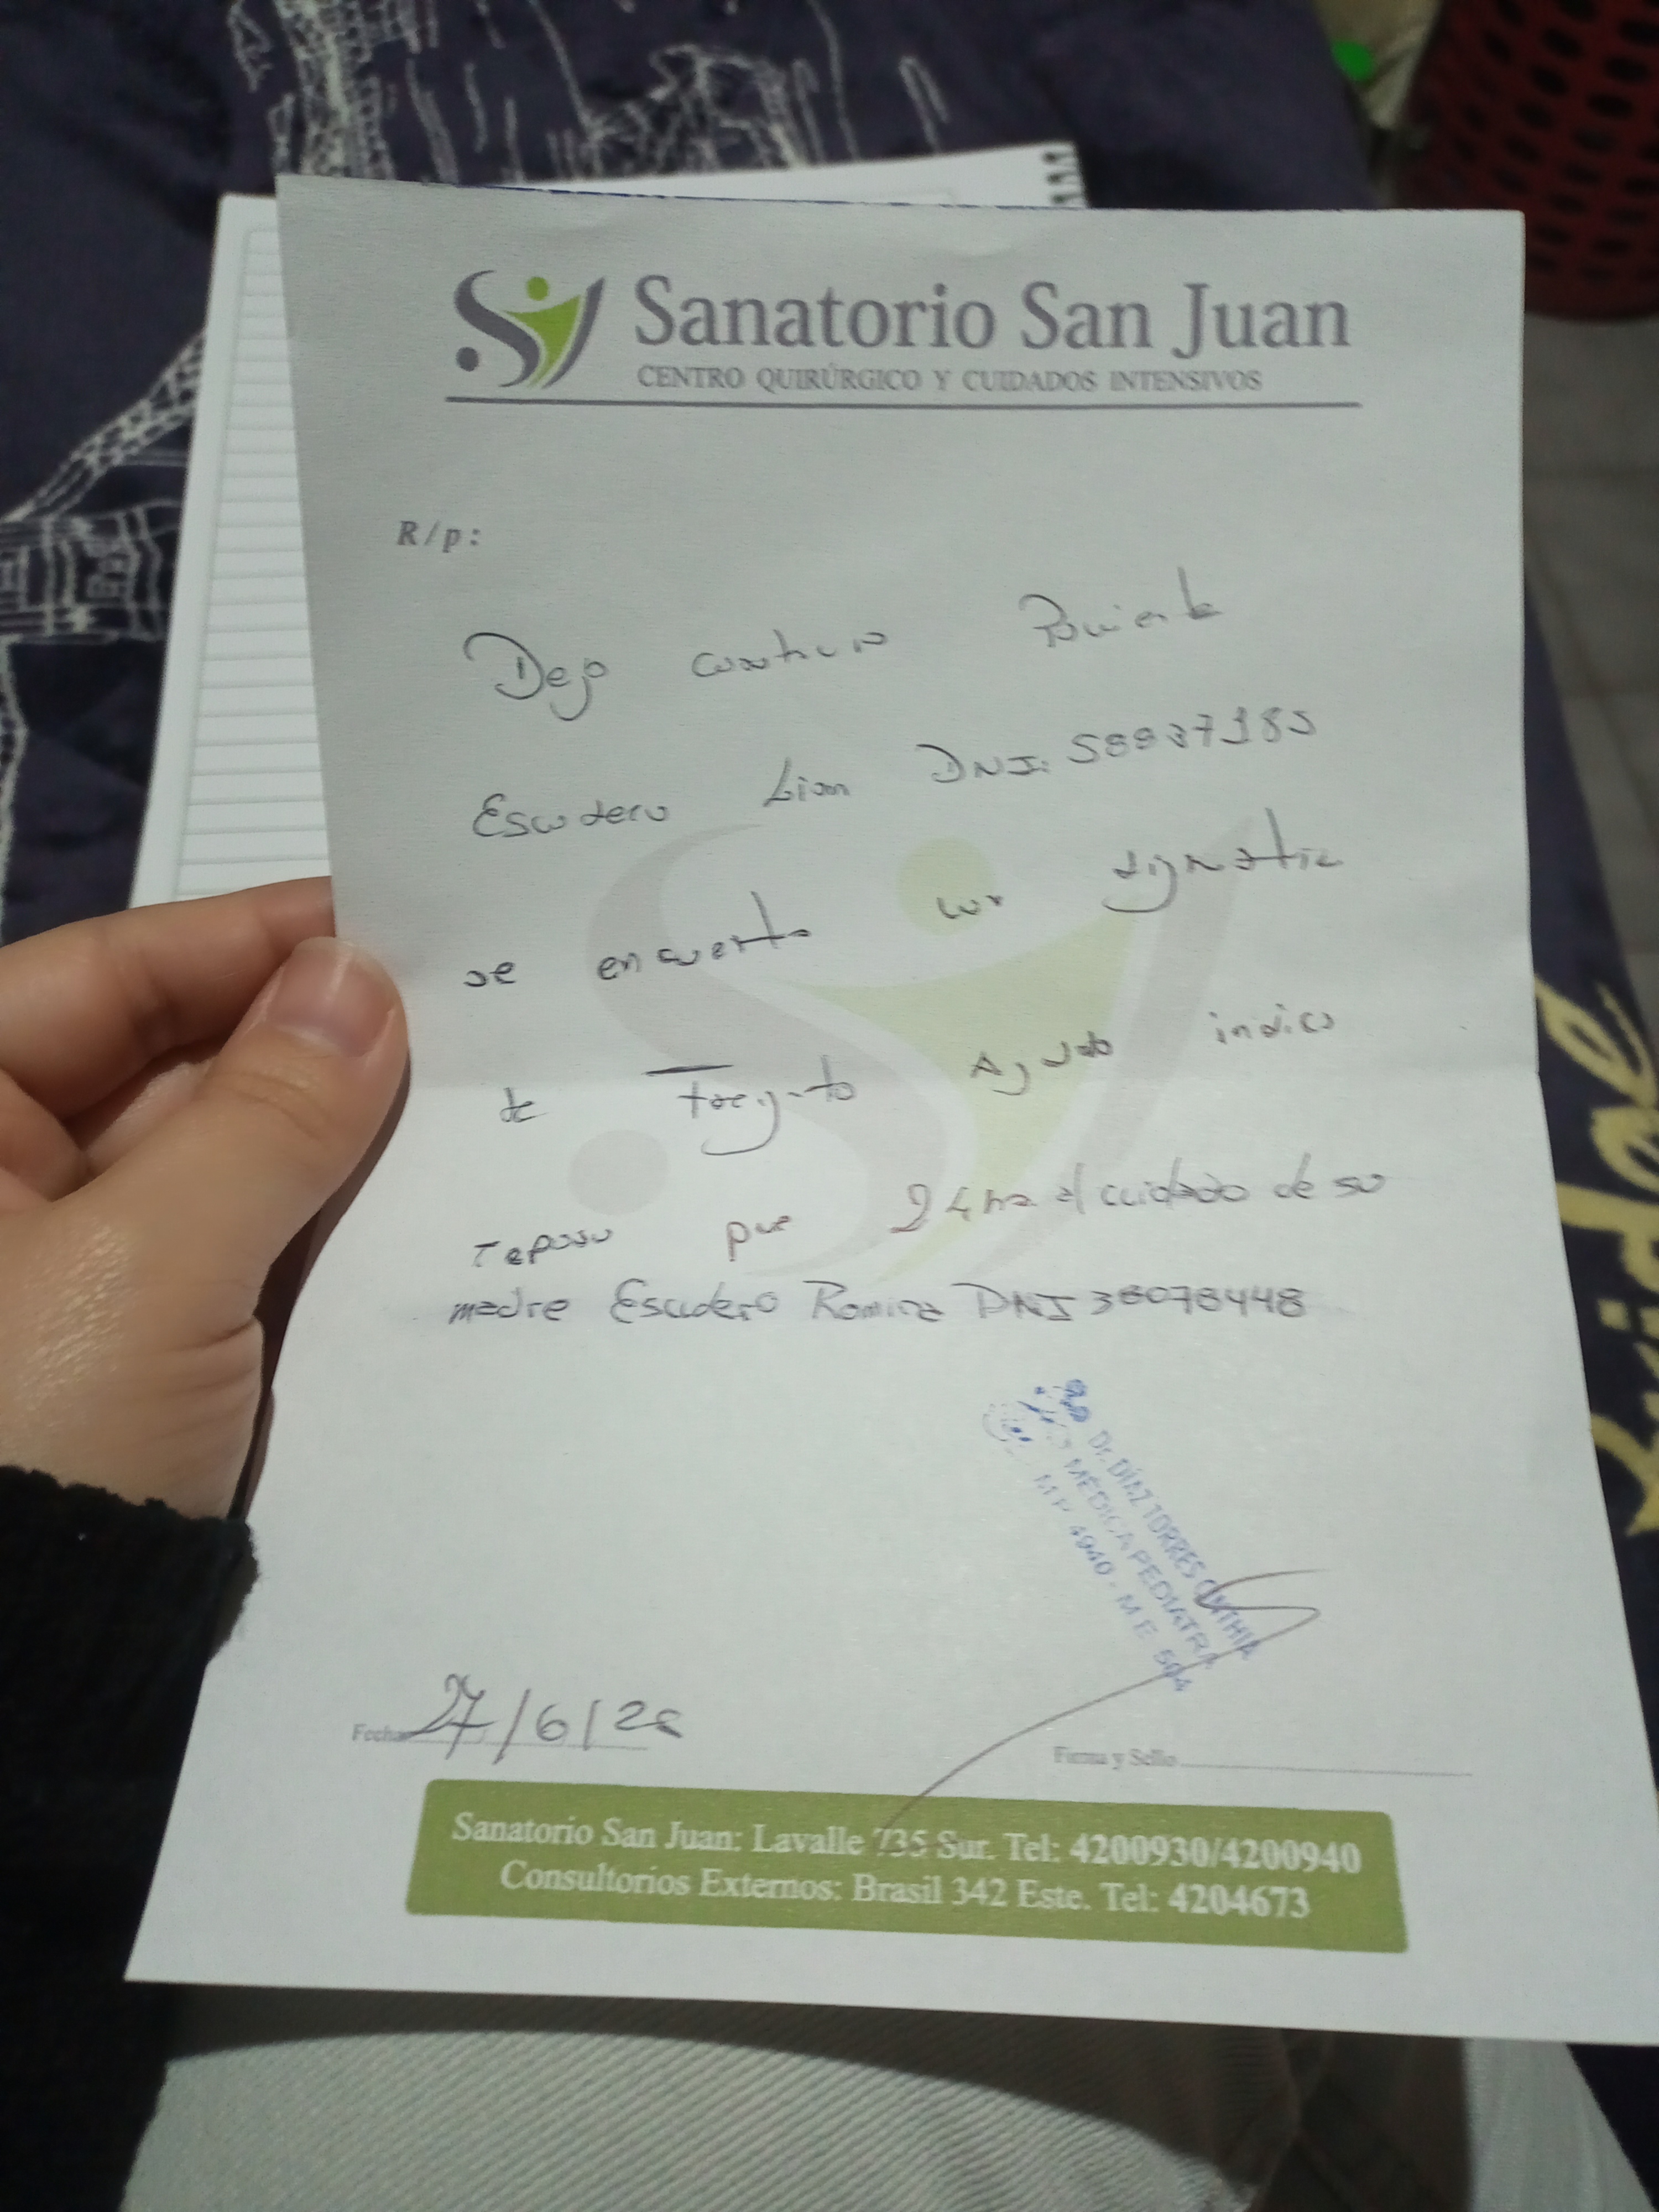 Sanatorio San Juan
CENTRO QUIRÚRGICO Y CUIDADOS INTENSIVOS
R/p:
Dejo constancia Paciente
Escudero Lian DNI: 58937185
se encuentra con diagnostico
de Agudo indico
reposo por 24 hs al cuidado de su
madre Escudero Romina DNI 38078448
Dr. DÍAZ TORRES CINTHIA
MÉDICA PEDIATRA
M P 4940 - M E 504
Fecha 27/6/26
Firma y Sello
Sanatorio San Juan: Lavalle 735 Sur. Tel: 4200930/4200940
Consultorios Externos: Brasil 342 Este. Tel: 4204673